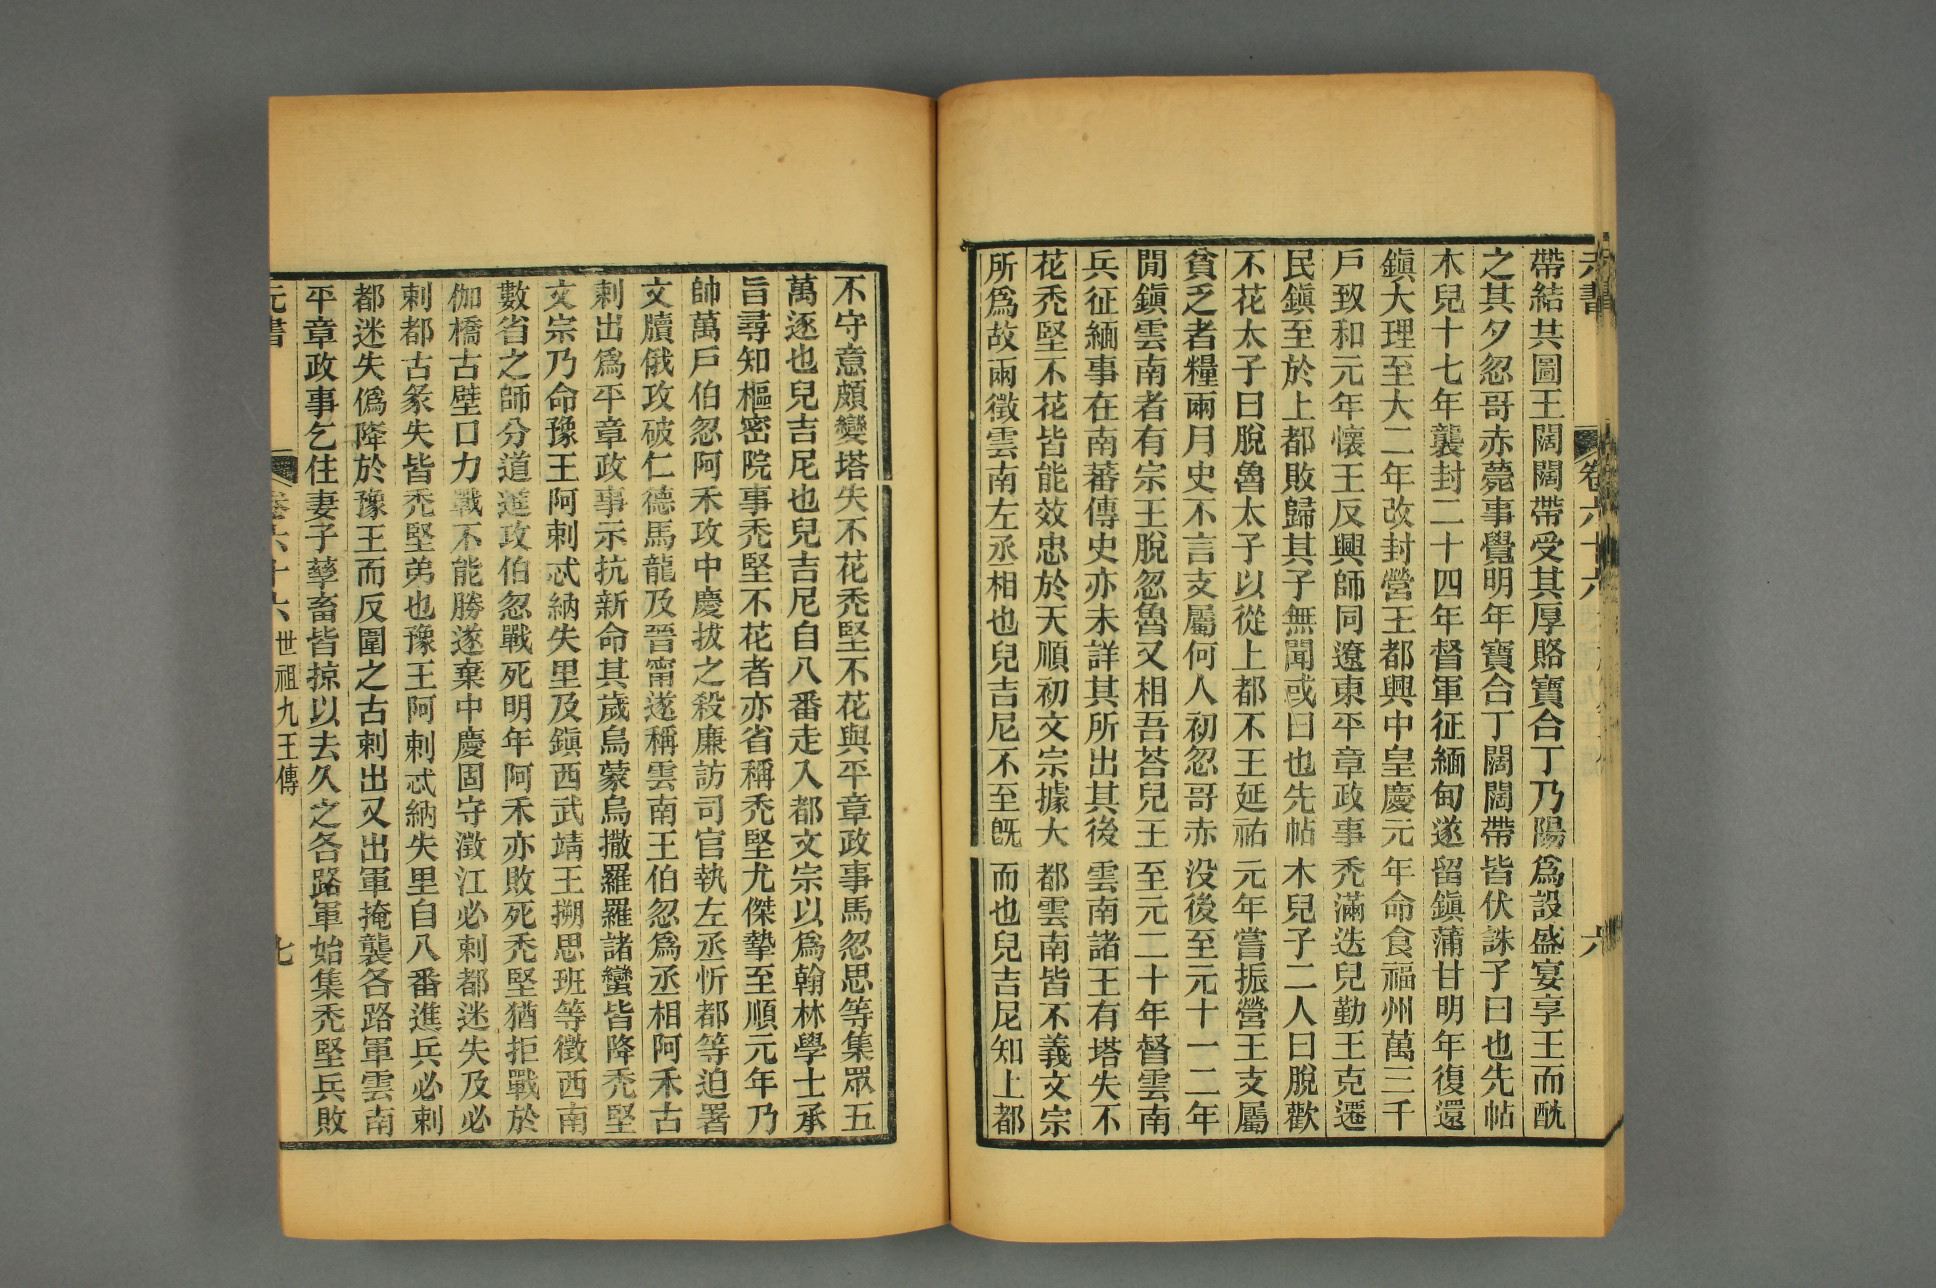 元書 卷六十六 六
帶結共圖王闊闊帶受其厚賂寶合丁乃陽爲設盛宴享王而酖
之其夕忽哥赤薨事覺明年寶合丁闊闊帶皆伏誅子曰也先帖
木兒十七年襲封二十四年督軍征緬甸遂留鎭蒲甘明年復還
鎭大理至大二年改封營王都興中皇慶元年命食福州萬三千
戶致和元年懷王反興師同遼東平章政事禿滿迭兒勤王克遷
民鎭至於上都敗歸其子無聞或曰也先帖木兒子二人曰脫歡
不花太子曰脫魯太子以從上都不王延祐元年嘗振營王支屬
貧乏者糧兩月史不言支屬何人初忽哥赤没後至元十一二年
閒鎭雲南者有宗王脫忽魯又相吾荅兒王至元二十年督雲南
兵征緬事在南蕃傳史亦未詳其所出其後雲南諸王有塔失不
花禿堅不花皆能效忠於天順初文宗據大都雲南皆不義文宗
所爲故兩徵雲南左丞相也兒吉尼不至旣而也兒吉尼知上都
不守意頗變塔失不花禿堅不花與平章政事馬忽思等集眾五
萬逐也兒吉尼也兒吉尼自八番走入都文宗以爲翰林學士承
旨尋知樞密院事禿堅不花者亦省稱禿堅尤傑摯至順元年乃
帥萬戶伯忽阿禾攻中慶拔之殺廉訪司官執左丞忻都等迫署
文牘俄攻破仁德馬龍及晉甯遂稱雲南王伯忽爲丞相阿禾古
剌出爲平章政事示抗新命其歲烏蒙烏撒羅羅諸蠻皆降禿堅
文宗乃命豫王阿剌忒納失里及鎭西武靖王搠思班等徵西南
數省之師分道進攻伯忽戰死明年阿禾亦敗死禿堅猶拒戰於
伽橋古壁口力戰不能勝遂棄中慶固守澂江必剌都迷失及必
剌都古彖失皆禿堅弟也豫王阿剌忒納失里自八番進兵必剌
都迷失僞降於豫王而反圍之古剌出又出軍掩襲各路軍雲南
平章政事乞住妻子孳畜皆掠以去久之各路軍始集禿堅兵敗
元書 卷六十六 世祖九王傳 七